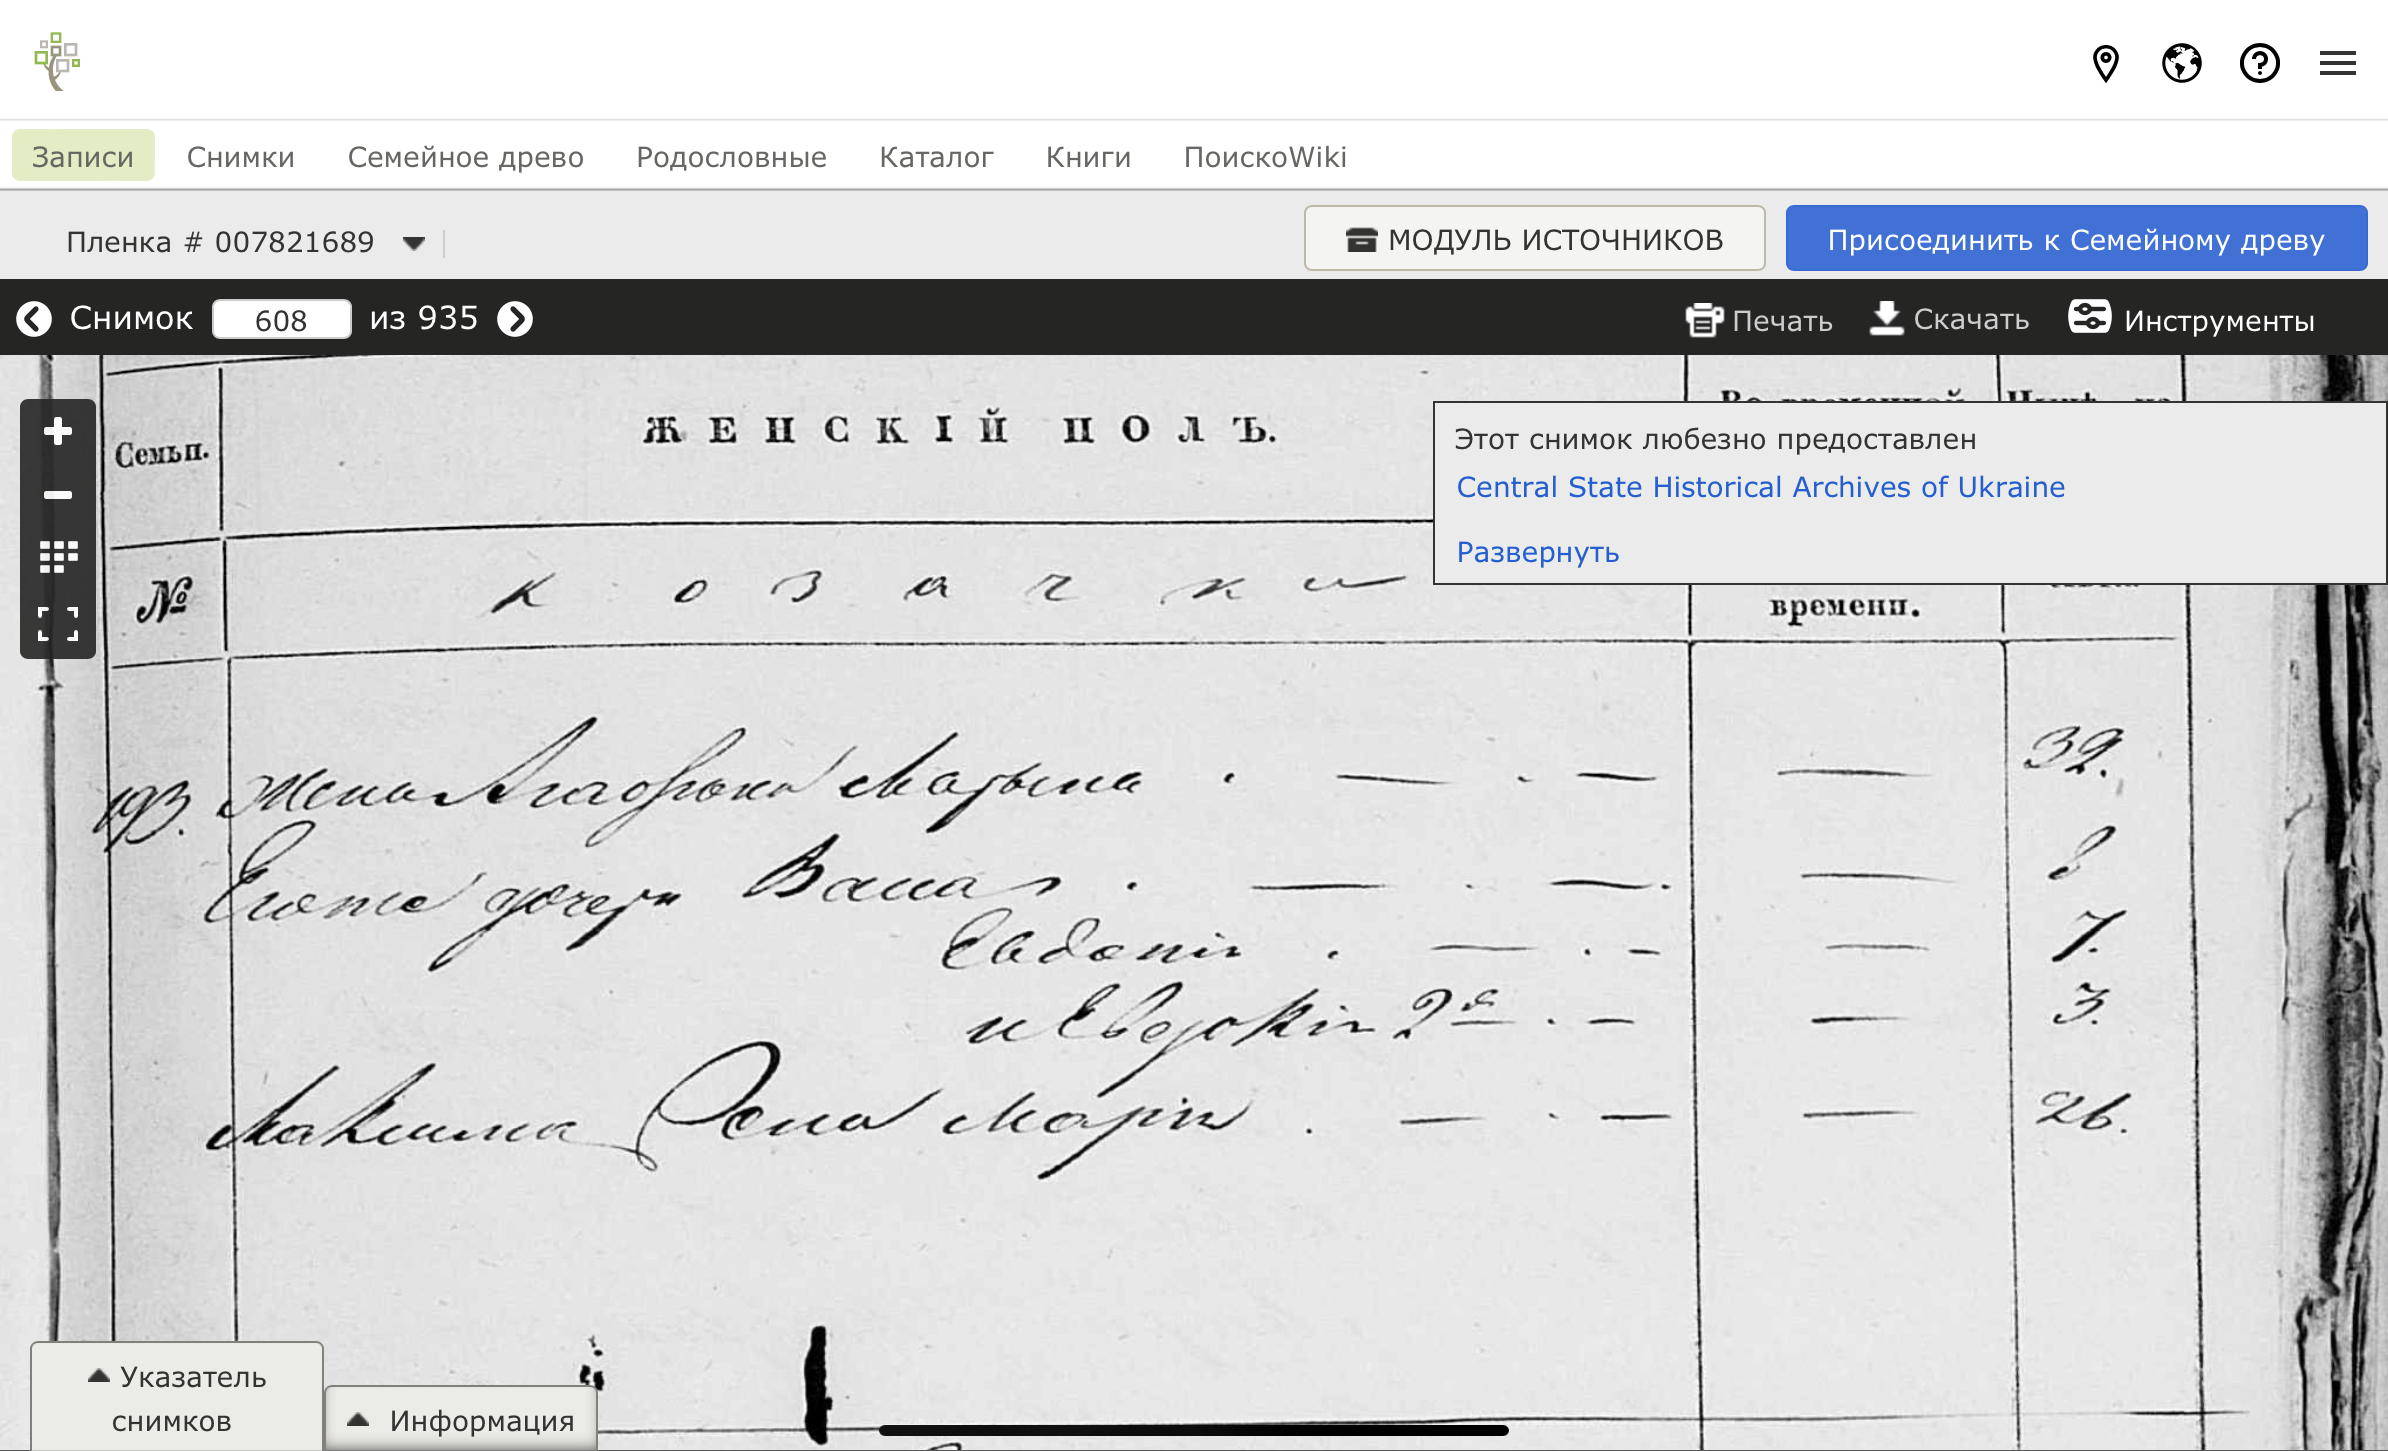 Записи Снимки Семейное древо Родословные Каталог Книги ПоискоWiki
Пленка # 007821689
МОДУЛЬ ИСТОЧНИКОВ
Присоединить к Семейному древу
Снимок 608 из 935
Печать Скачать Инструменты
Семьи.
ЖЕНСКІЙ ПОЛЪ.
Этот снимок любезно предоставлен
Central State Historical Archives of Ukraine
Развернуть
№
козачки
времени.
193. Жена Марьина 32.
Егоже дочери Васса 8
Евдокія 7.
и Евдокія 2я 3.
Максима Жена Марія 26.
Указатель
снимков
Информация